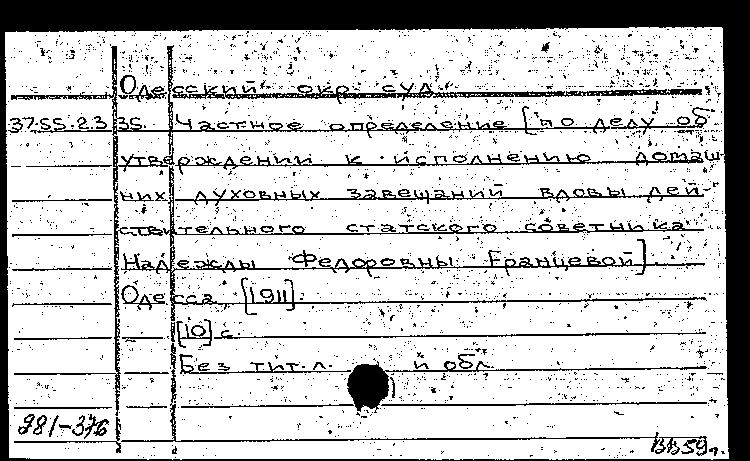 Одесский окр. суд.
37.55.2.3 35. Частное определение [по делу об
утверждении к исполнению домаш-
них духовных завещаний вдовы дей-
ствительного статского советника
Надежды Федоровны Еранцевой]
Одесса, [1911].
[10] с.
Без тит. л. и обл.
281-376